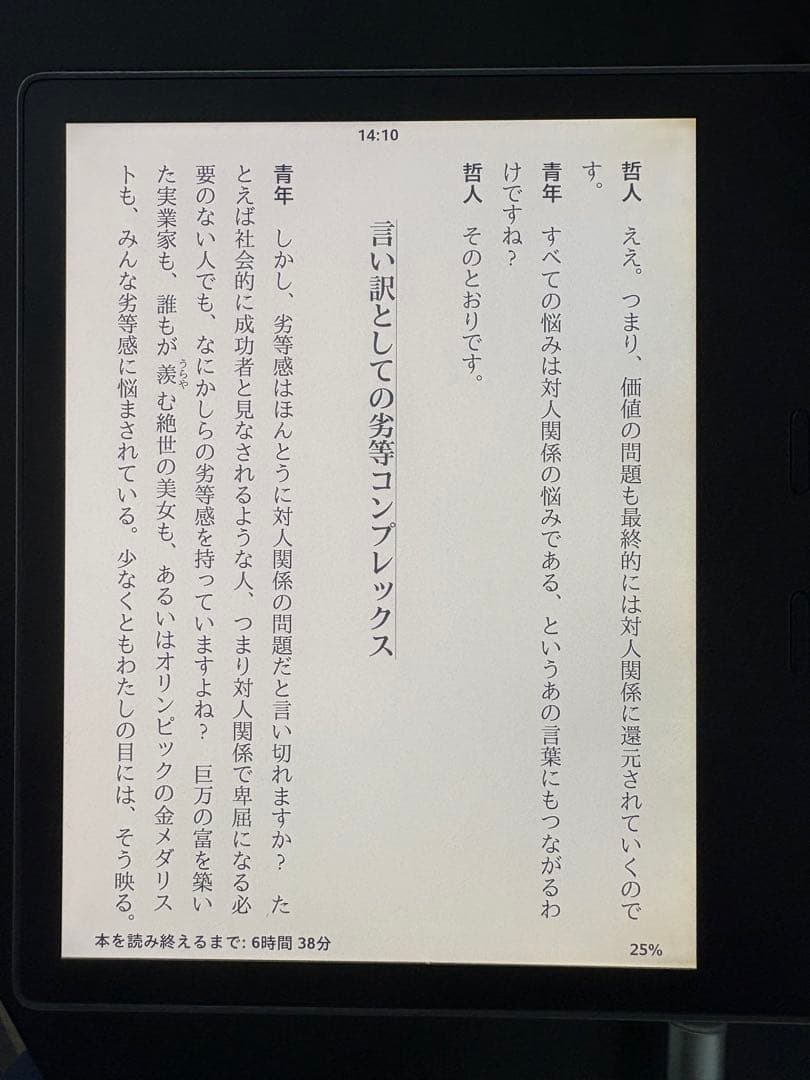 14:10
哲人　ええ。つまり、価値の問題も最終的には対人関係に還元されていくので
す。
青年　すべての悩みは対人関係の悩みである、というあの言葉にもつながるわ
けですね？
哲人　そのとおりです。
言い訳としての劣等コンプレックス
青年　しかし、劣等感はほんとうに対人関係の問題だと言い切れますか？　た
とえば社会的に成功者と見なされるような人、つまり対人関係で卑屈になる必
要のない人でも、なにかしらの劣等感を持っていますよね？　巨万の富を築い
た実業家も、誰もが羨うらやむ絶世の美女も、あるいはオリンピックの金メダリス
トも、みんな劣等感に悩まされている。少なくともわたしの目には、そう映る。
本を読み終えるまで: 6時間 38分
25%